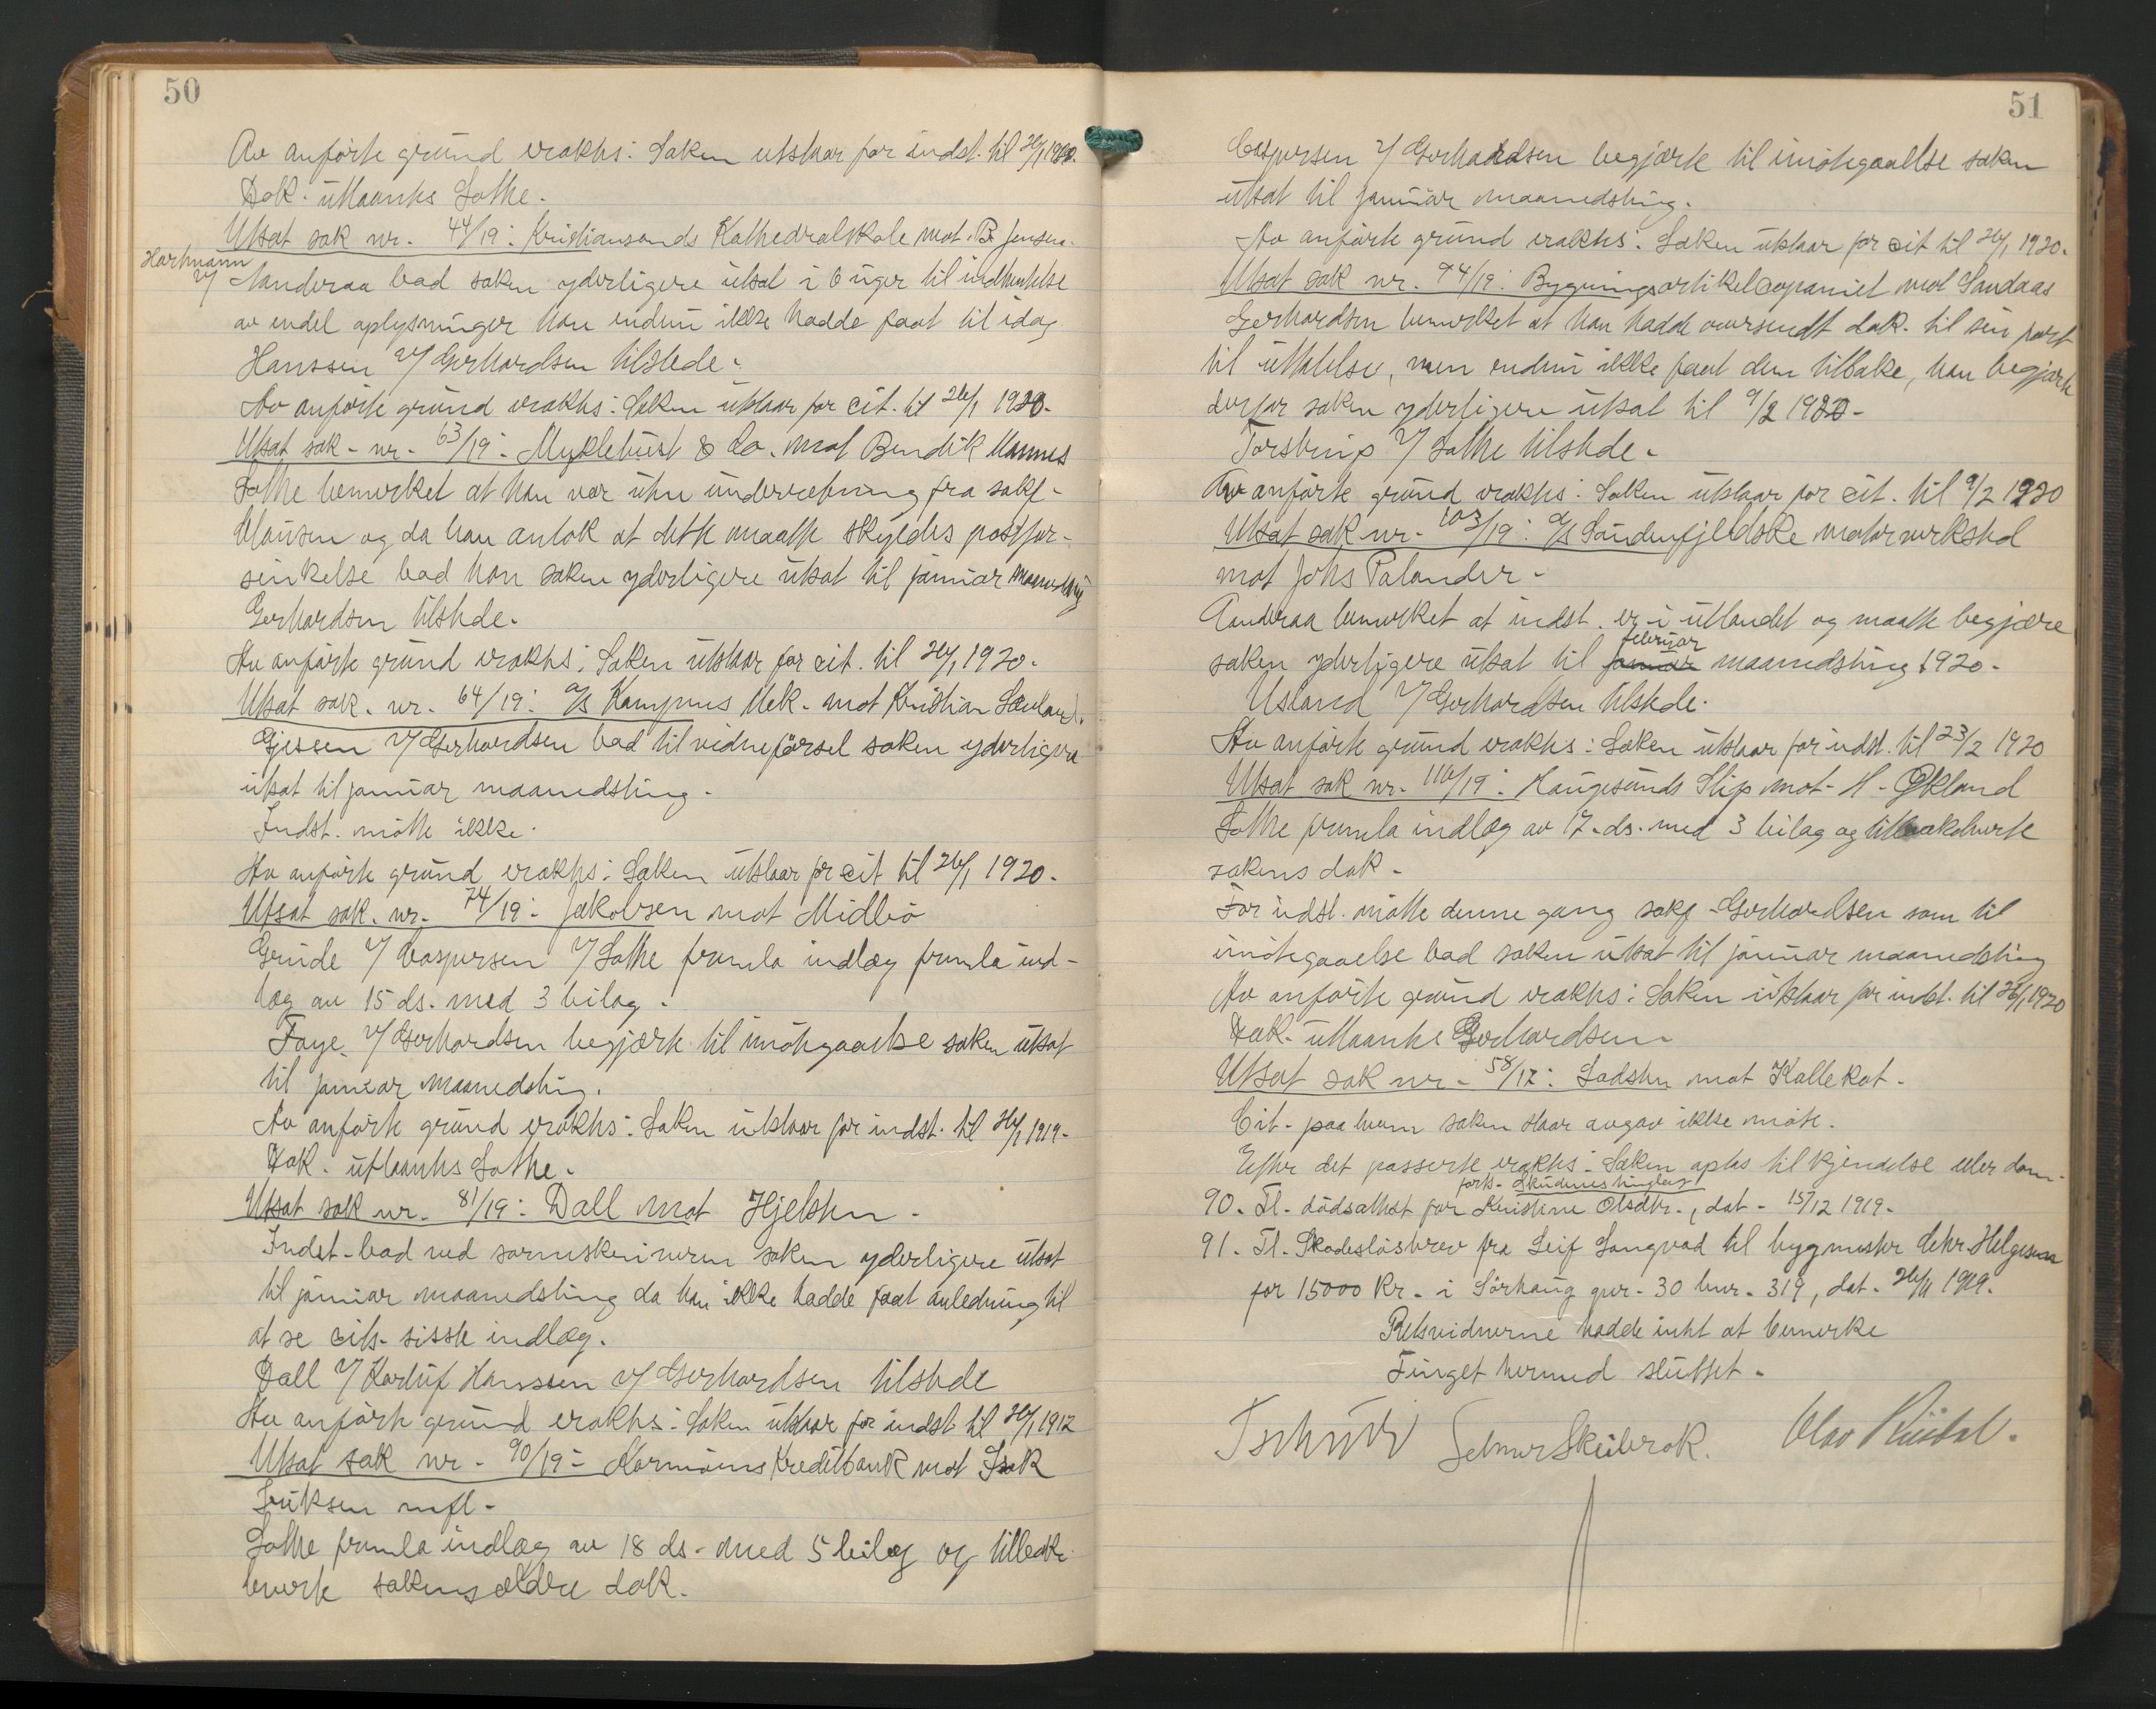 50
Av anførte grund erakhs: Saken utstaar for indst. til 26/1 1920.
Dok. utlaantes Sothe.
Utsat sak nr. 44/19: Kristiansands Kathedralskole mot B. Jensen.
Hartmann
v/ Aanderaa bad saken yderligere utsat i 6 uger til indhentelse
av endel oplysninger han endnu ikke hadde faat til idag.
Hanssen v/ Gerhardsen tilstede.
Av anførte grund eraktes: Saken utstaar for cit. til 26/1 1920.
Utsat sak nr. 63/19: Myklebust & Co. mot Bendik Mannes
Sothe bemerket at han var uten underretning fra sakf.
Clausen og da han antok at dette maatte skyldes postfor-
sinkelse bad han saken yderligere utsat til januar maanedsting
Gerhardsen tilstede.
Av anførte grund eraktes: Saken utstaar for cit. til 26/1 1920.
Utsat sak. nr. 64/19: A/S Kampens Mek. mot Kristian Sævland.
Gjessen v/ Gerhardsen bad til vidneførsel saken yderligere
utsat til januar maanedsting.
Indst. møtte ikke.
Av anførte grund eraktes: Saken utstaar for cit til 26/1 1920.
Utsat sak. nr. 74/19: Jakobsen mot Midbø
Grude v/ Caspersen v/ Sothe fremla indlæg fremla ind-
læg av 15 ds. med 3 bilag.
Faye v/ Gerhardsen begjærte til imøtegaaelse saken utsat
til januar maanedsting.
Av anførte grund eraktes: Saken utstaar for indst. til 26/1 1919.
Dok. utlaantes Sothe.
Utsat sak nr. 81/19: Dall mot Hjelsten.
Indst. bad ved sorenskriveren saken yderligere utsat
til januar maanedsting da han ikke hadde faat anledning til
at se cits. sisste indlæg.
Dall v/ Karluf Hanssen v/ Gerhardsen tilstede
Av anførte grund eraktes: Saken utstaar for indst til 26/1 1912
Utsat sak nr. 90/19: Karmøens Kreditbank mot Isak
Eriksen mfl.
Sothe fremla indlæg av 18 ds. med 5 bilag og tilbake
leverte sakens ældre dok.
51
Caspersen v/ Gerhardsen begjærte til imøtegaallse saken
utsat til januar maanedsting.
Av anførte grund eraktes: Saken utstaar for cit til 26/1 1920.
Utsat sak nr. 94/19: Bygningsartikelcopaniet mot Sandaas
Gerhardsen bemerket at han hadde oversendt dok. til sin part
til uttalelse, men endnu ikke faat dem tilbake, han begjærte
derfor saken yderligere utsat til 9/2 1920.
Torstrup v/ Sothe tilstede.
Av anførte grund eraktes: Saken utstaar for cit. til 9/2 1920
Utsat sak nr. 103/19: A/S Søndenfjeldske motorverksted
mot Johs Palander.
Aanderaa bemerket at indst. er i utlandet og maatte begjære
februar
saken yderligere utsat til januar maanedsting 1920.
Usland v/ Gerhardsen tilstede.
Av anførte grund eraktes: Saken utstaar for indst. til 23/2 1920
Utsat sak nr. 116/19: Haugesunds Slip mot H. Økland
Sothe fremla indlæg av 17. ds. med 3 bilag og tilbakeleverte
sakens dok.
For indst. møtte denne gang sakf. Gerhardsen som til
imøtegaaelse bad saken utsat til januar maanedsting
Av anførte grund eraktes: Saken utstaar for indst. til 26/1 1920
Dok. utlaantes Gerhardsen.
Utsat sak nr. 58/17: Sadsten mot Kallekot.
Cit. paa hvem saken staar avgav ikke møte.
Efter det passerte eraktes: Saken optas til kjendelse eller dom.
forts. Skudenes tinglag
90. Tl. dødsattest for Kristene Olsdtr., dat. 15/12 1919.
91. Tl. Skadesløsbrev fra Leif Langvad til bygmester Hehr. Helgesen
for 15000 Kr. i Sørhaug gnr. 30 bnr. 319, dat. 26/11 1919.
Retsvidnerne hadde intet at bemerke
Tinget hermed sluttet.
Selmer Skeibrok. Olav